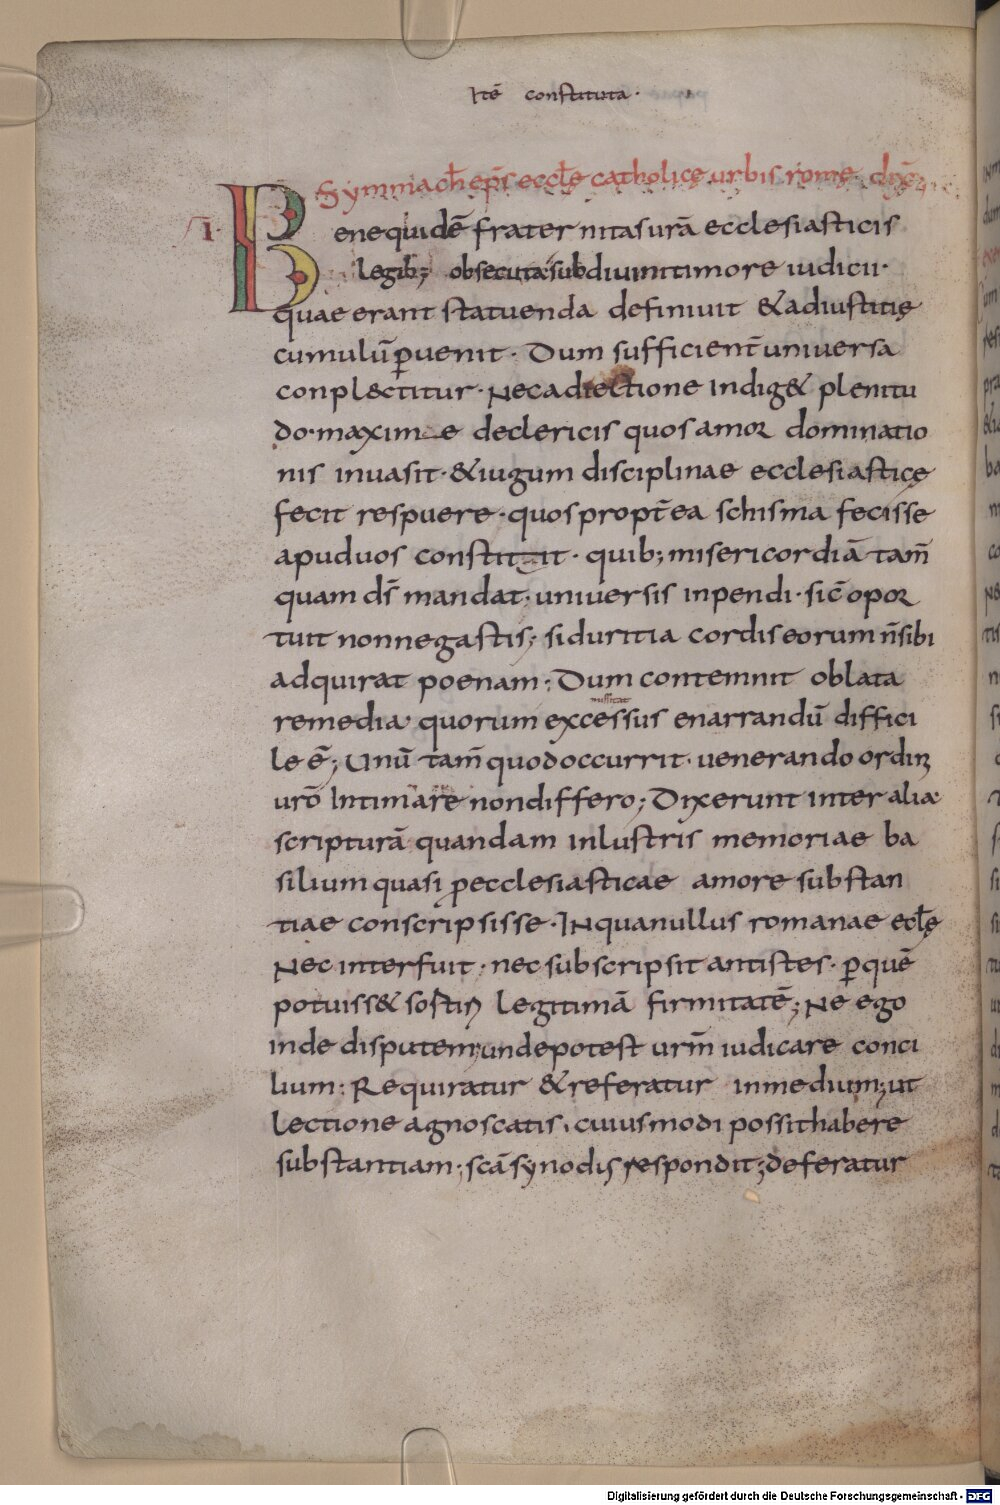 Itē constituta·
Symmach̄ ep̄s eccl̄ę catholicę urbis romę dix̄
I·
Bene quidē fraternitas urā ecclesiasticis
legib; obsecuta sub diuini timore iudicii·
quae erant statuenda definiuit & ad iustitię
cumulū ꝑuenit · Dum sufficient̄ uniuersa
conplectitur · Nec adiectione indig& plenitu
do· maxime de clericis quos amor dominatio
nis inuasit · & iugum disciplinae ecclesiasticę
fecit respuere · quos propt̄ea schisma fecisse
apud uos constitit · quib; misericordiā tam̄
quam d̄s mandat · uniuersis inpendi · sic̄ opor
tuit non negastis; si duritia cordis eorum n̄ sibi
adquirat poenam; Dum contemnit oblata
remedia quorum excessus enarrandū diffici
le ē; Unū tam̄ quod occurrit · uenerando ordin
urō Intimare non differo; Dixerunt inter alia
scripturā quandam inlustris memoriae ba
silium quasi ꝓ ecclesiasticae amore substan
tiae conscripsisse · In qua nullus romanae ecl̄ę
Nec interfuit · nec subscripsit antistes · ꝑ quē
potuiss& sortiri legitimā firmitatē; Ne ego
inde disputem; unde potest urm̄ iudicare conci
lium: Requiratur & referatur in medium; ut
Lectione agnoscatis, cuiusmodi possit habere
substantiam; scā synodis respondit; deferatur
Digitalisierung gefördert durch die Deutsche Forschungsgemeinschaft - DFG